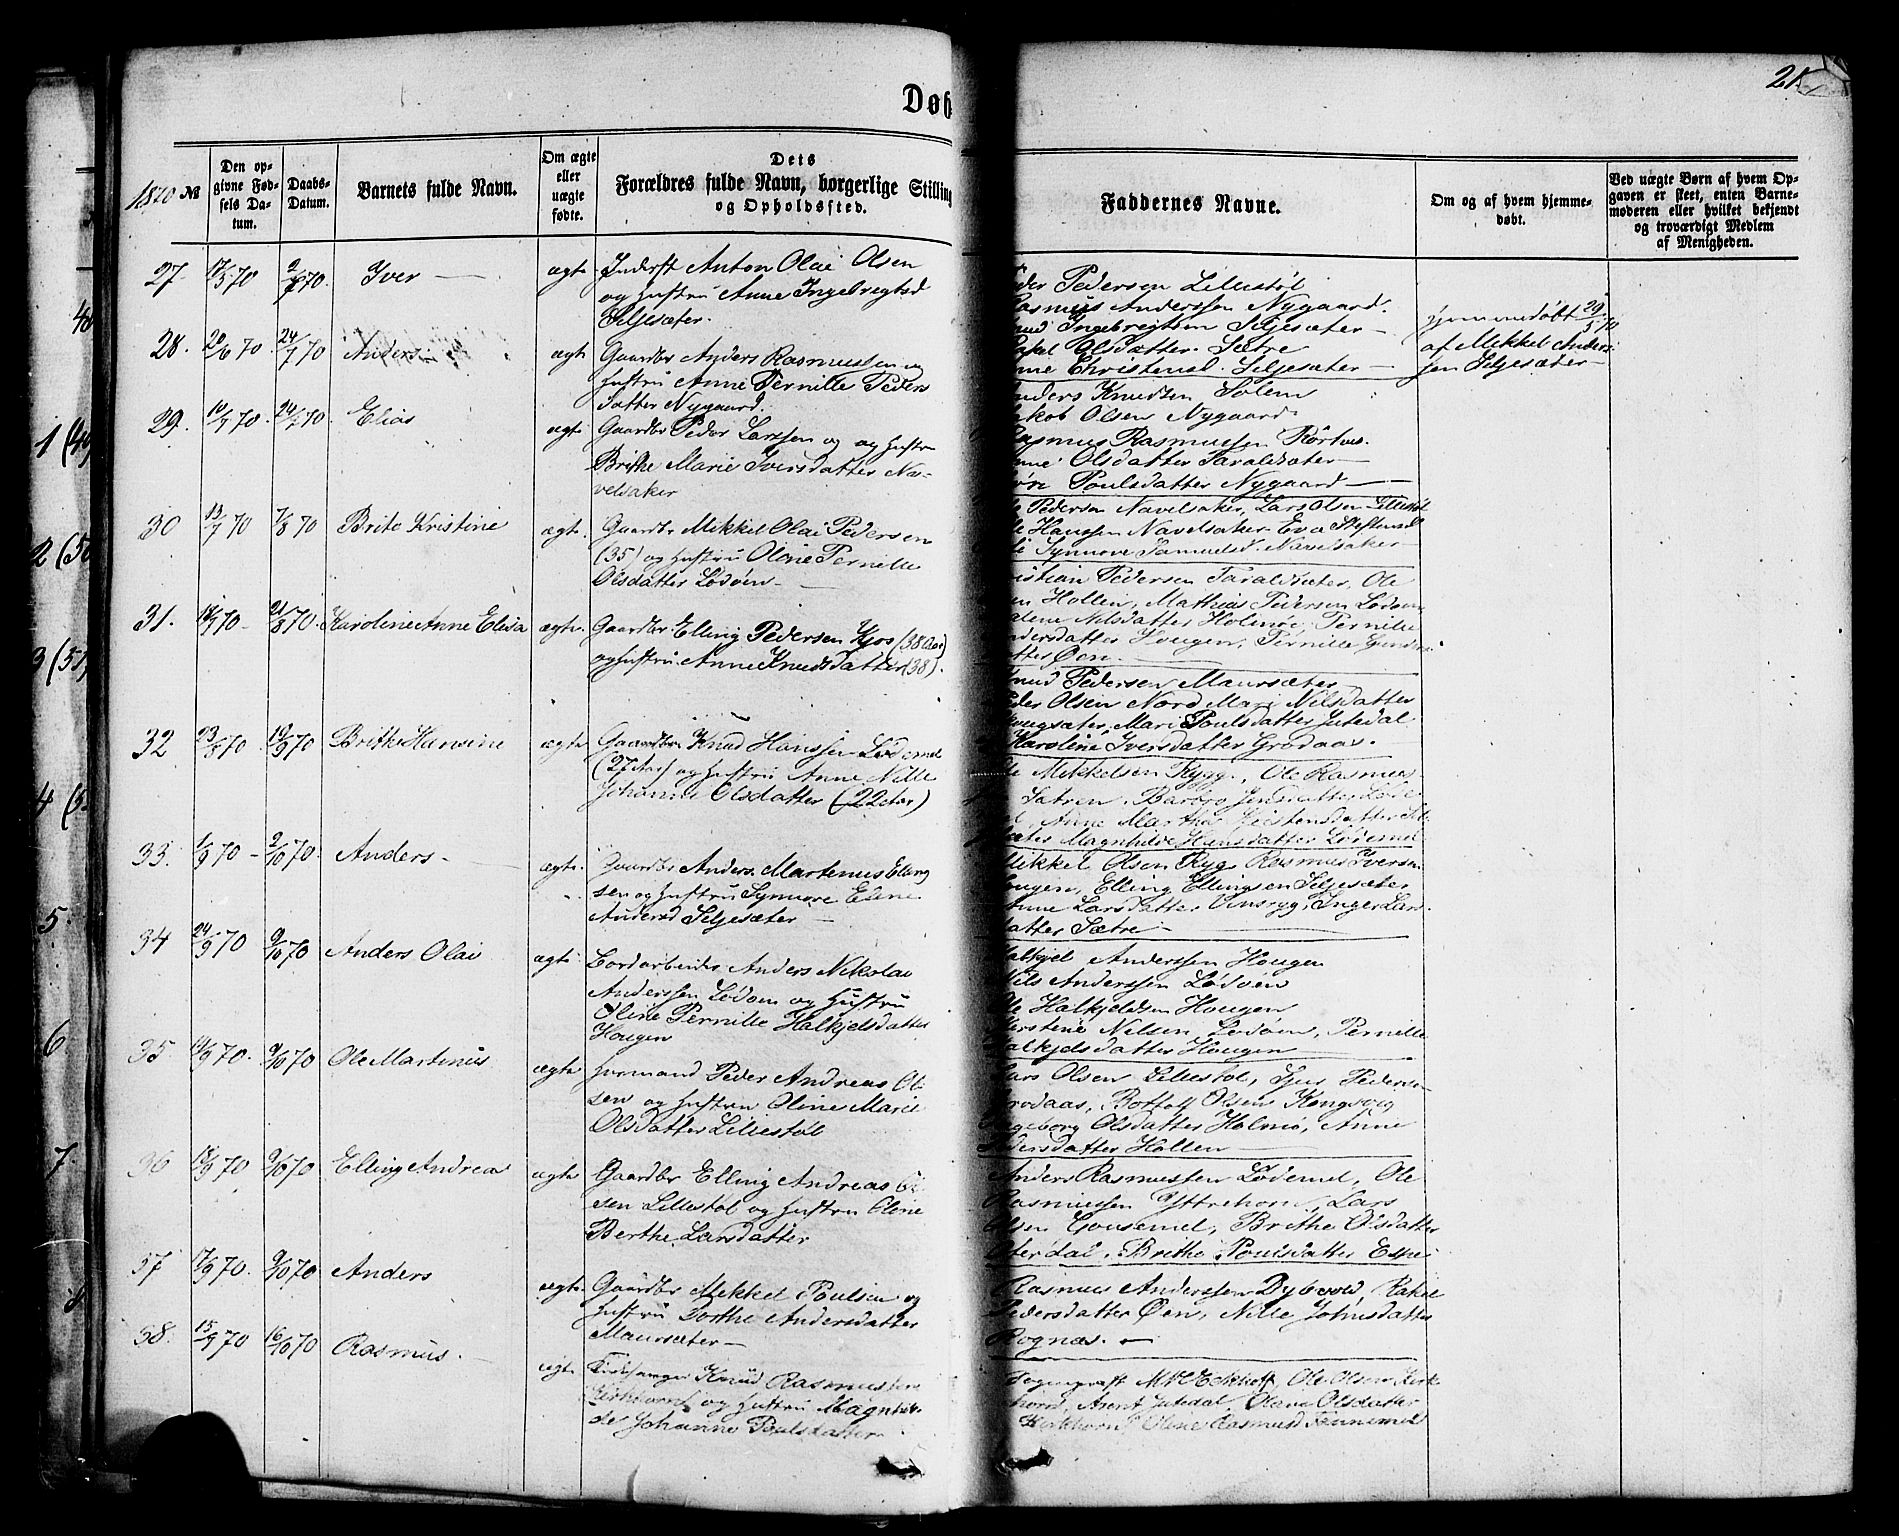 Døb
21
1870 №
Den opgivne Fødsels Datum.
Daabs-Datum.
Barnets fulde Navn.
Om ægte eller uægte fødte.
Dets Forældres fulde Navn, borgerlige Stilling og Opholdssted.
Faddernes Navne.
Om og af hvem hjemmedøbt.
Ved uægte Børn af hvem Opgaven er skeet, enten Barnemoderen eller hvilket bekjendt og troværdigt Medlem af Menigheden.
27. 17/5 70 2/7 70. Iver — ægte
Inderst Anton Olai Olsen
og Hustru Anne Ingebregtsd
Seljesæter.
Peder Pedersen Lillestøl
Rasmus Anderssen Nygaard.
Knud Ingebreigtsen Seljesæter
Rakel Olsdatter Sætre
Anne Christensd. Seljesæter
hjemmedøbt 29/5 70
af Mikkel Anders-
sen Seljesæter
28. 20/6 70. 24/7 70 Anders ægte
Gaardbr Anders Rasmussen og
Hustru Anne Pernille Peders
datter Nygaard.
Anders Knudsen Solem
Jakob Olsen Nygaard
Rasmus Rasmussen
Anne Olsdatter Taraldsæter
Poulsdatter Nygaard
29. 10/7 70. 24/7 70 Elias ægte
Gaardbr Peder Larssen og og Hustru
Brithe Marie Iversdatter Na-
velsaker
Pedersen Navelsaker, Lars Olsen Lillestøl
Hanssen Navelsaker Eva
Synnove Samuelsd. Navelsaker
30 13/7 70 7/8 70 Brite Kristine ægte
Gaardbr Mikkel Olai Pedersen
(35) og Hustru Oline Pernille
Olsdatter Lødøen
Kristian Pedersen Taraldsæter, Ole
Hollen, Mathias Pedersen Lødøen
Nilsdatter Holmøe Pernille
Andersdatter Hougen, Pernille
datter Øen
31. 70 21/8 70. Karoline Anne Elisa ægte
Gaardbr Elling Pedersen Kjos (38 Aar)
og Hustru Anne Knudsdatter (38).
Knud Pedersen Maursæter
Peder Olsen Nord, Mari Nilsdatter
Hougsæter, Mari Poulsdatter Jutedal
Karoline Iversdatter Grodaas.
32 23/8 70. 18/9 70 Brithe Hansine ægte
Gaardbr Knud Hanssen Lødemel
(27 Aar) og Hustru Anne Nille
Johanne Olsdatter (22 Aar)
Ole Mikkelsen Rygg, Ole Rasmus-
Sætren, Barbro Jensdatter Løde
Anne Martha
Magnhilde Hansdatter Lødemel
33. 1/9 70 2/10 70. Anders ægte
Gaardbr Anders Martinus Elling
sen og Hustru Synnove Eline
Andersd Seljesæter
Mikkel Olsen Ryg, Rasmus Iversen
Hougen, Elling Ellingsen Seljesæter
Anne Larsdatter Vinsryg, Inger Lars
datter Sætre
34 24/9 70 9/10 70 Anders Olai ægte
Jordarbeider Anders Nikolai
Anderssen Lødøen og Hustru
Oline Pernille Halkjelsdatter
Hougen
Halkjel Anderssen Hougen
Nils Anderssen Lødøen
Ole Halkjeldsen Hougen
Nilsen Lødøen, Pernille
Halkjelsdatter Hougen
35 70. 9/10 70 Ole Martinus ægte
Husmand Peder Andreas Ol-
sen og Hustru Oline Marie
Olsdatter Lillestøl
Lars Olsen Lillestøl, Peders-
Grodaas, Bottolf Olsen Kongsvig
Ingeborg Olsdatter Holmø, Anne
Pedersdatter Hollen
36 18/9 70 9/10 70 Elling Andreas ægte
Gaardbr Elling Andreas Ol-
sen Lillestøl og Hustru Oline
Berthe Larsdatter
Anders Rasmussen Lødemel, Ole
Rasmussen Yttrehorn, Lars
Olsen Gousemel, Brithe Olsdatter
Oterdal, Brithe Poulsdatter Espe
37 17/9 70. 9/10 70 Anders ægte
Gaardbr Mikkel Poulsen og
Hustru Dorthe Andersdatter
Maursæter
Rasmus Anderssen Dybvold, Rakel
Pedersdatter Øen, Nille Johnsdatter
Rognæs.
38. 15/9 70 16/10 70 Rasmus. ægte
Kirkesanger Knud Rasmussen
Kirkhorn og Hustru Magnhil-
de Johanne Poulsdatter
Ole Olsen Kirk-
horn, Arent Jutedal, Olave Olsdatter
Kirkhorn, Oline Rasmusd Tennemel
1 (49
2 (50
3 (51)
4 (5
5.
6
7.
8